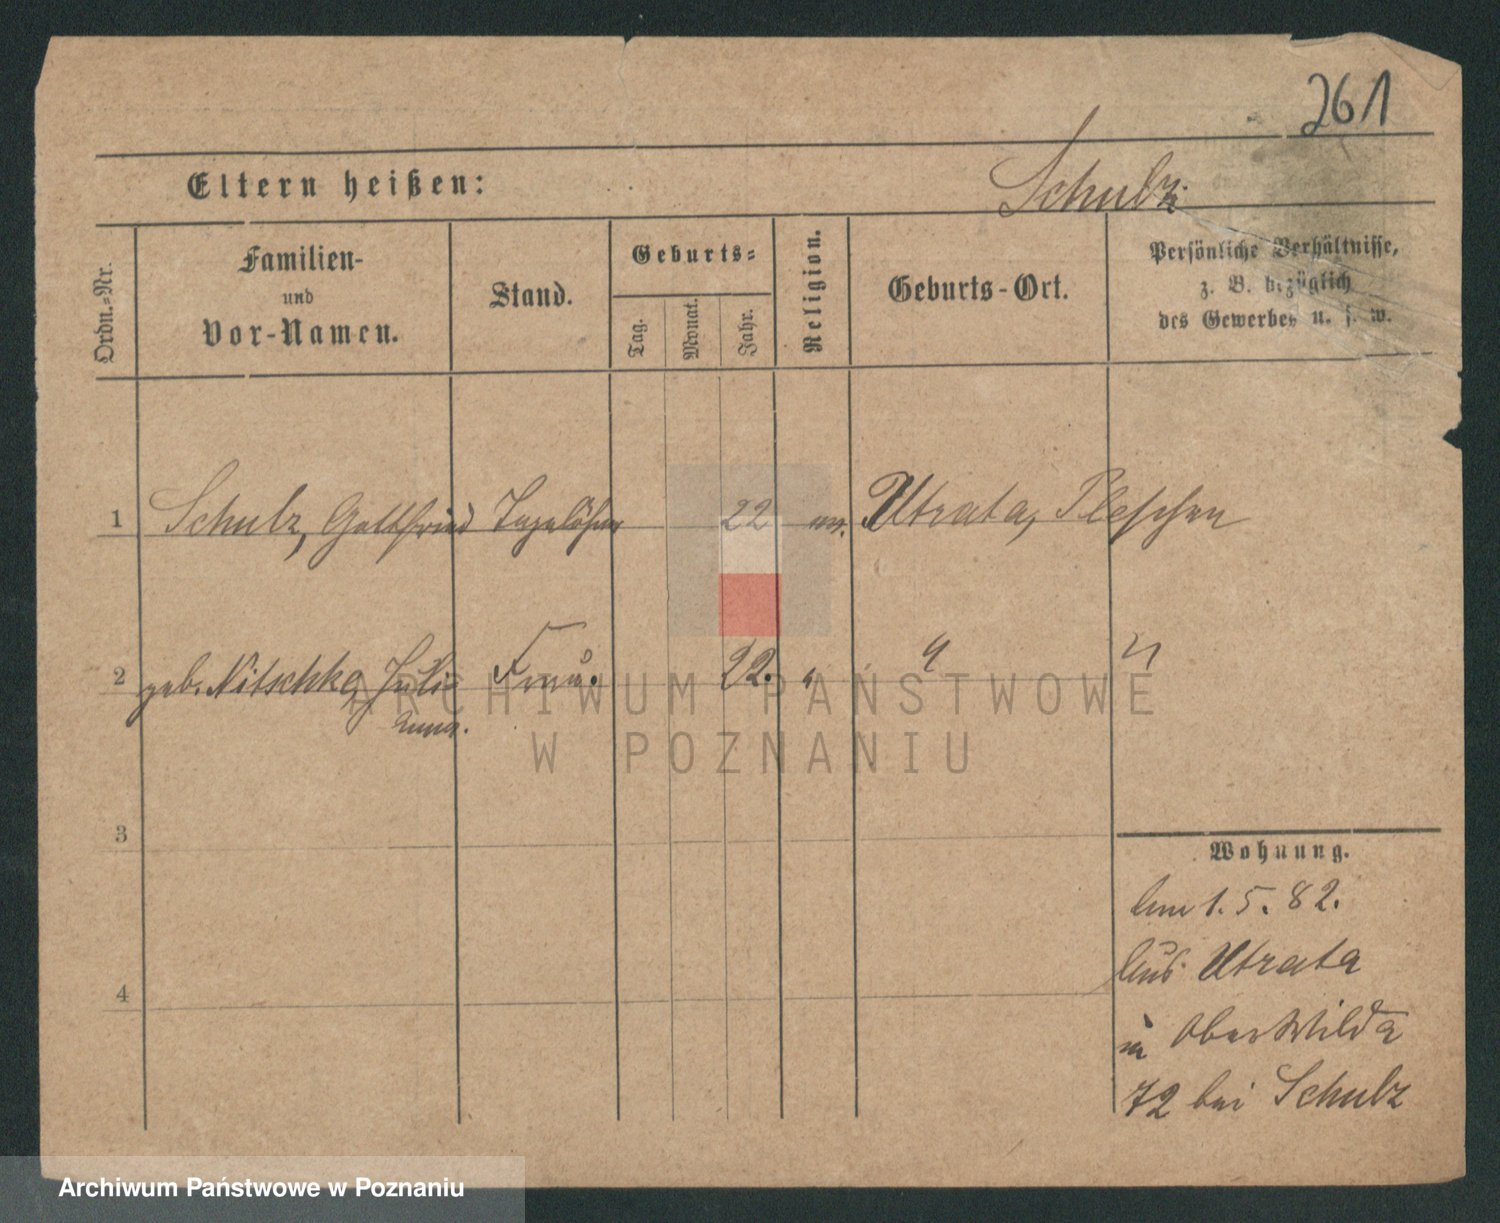 261
Eltern heißen:
Schulz
Ordn.-Nr.
Familien-
und
Vor-Namen.
Stand.
Geburts-
Tag.
Monat.
Jahr.
Religion.
Geburts-Ort.
Persönliche Verhältnisse,
z. B. bezüglich
des Gewerbes u. s. w.
1 Schulz, Gottfried Tagelöhner 22 ev. Utrata, Pleschen
2 geb. Nitschke, Julie Frau. 22. " " "
Anna.
3
4
Wohnung.
Am 1.5.82.
Aus Utrata
in Ober Wilda
72 bei Schulz
ARCHIWUM PAŃSTWOWE
W POZNANIU
Archiwum Państwowe w Poznaniu